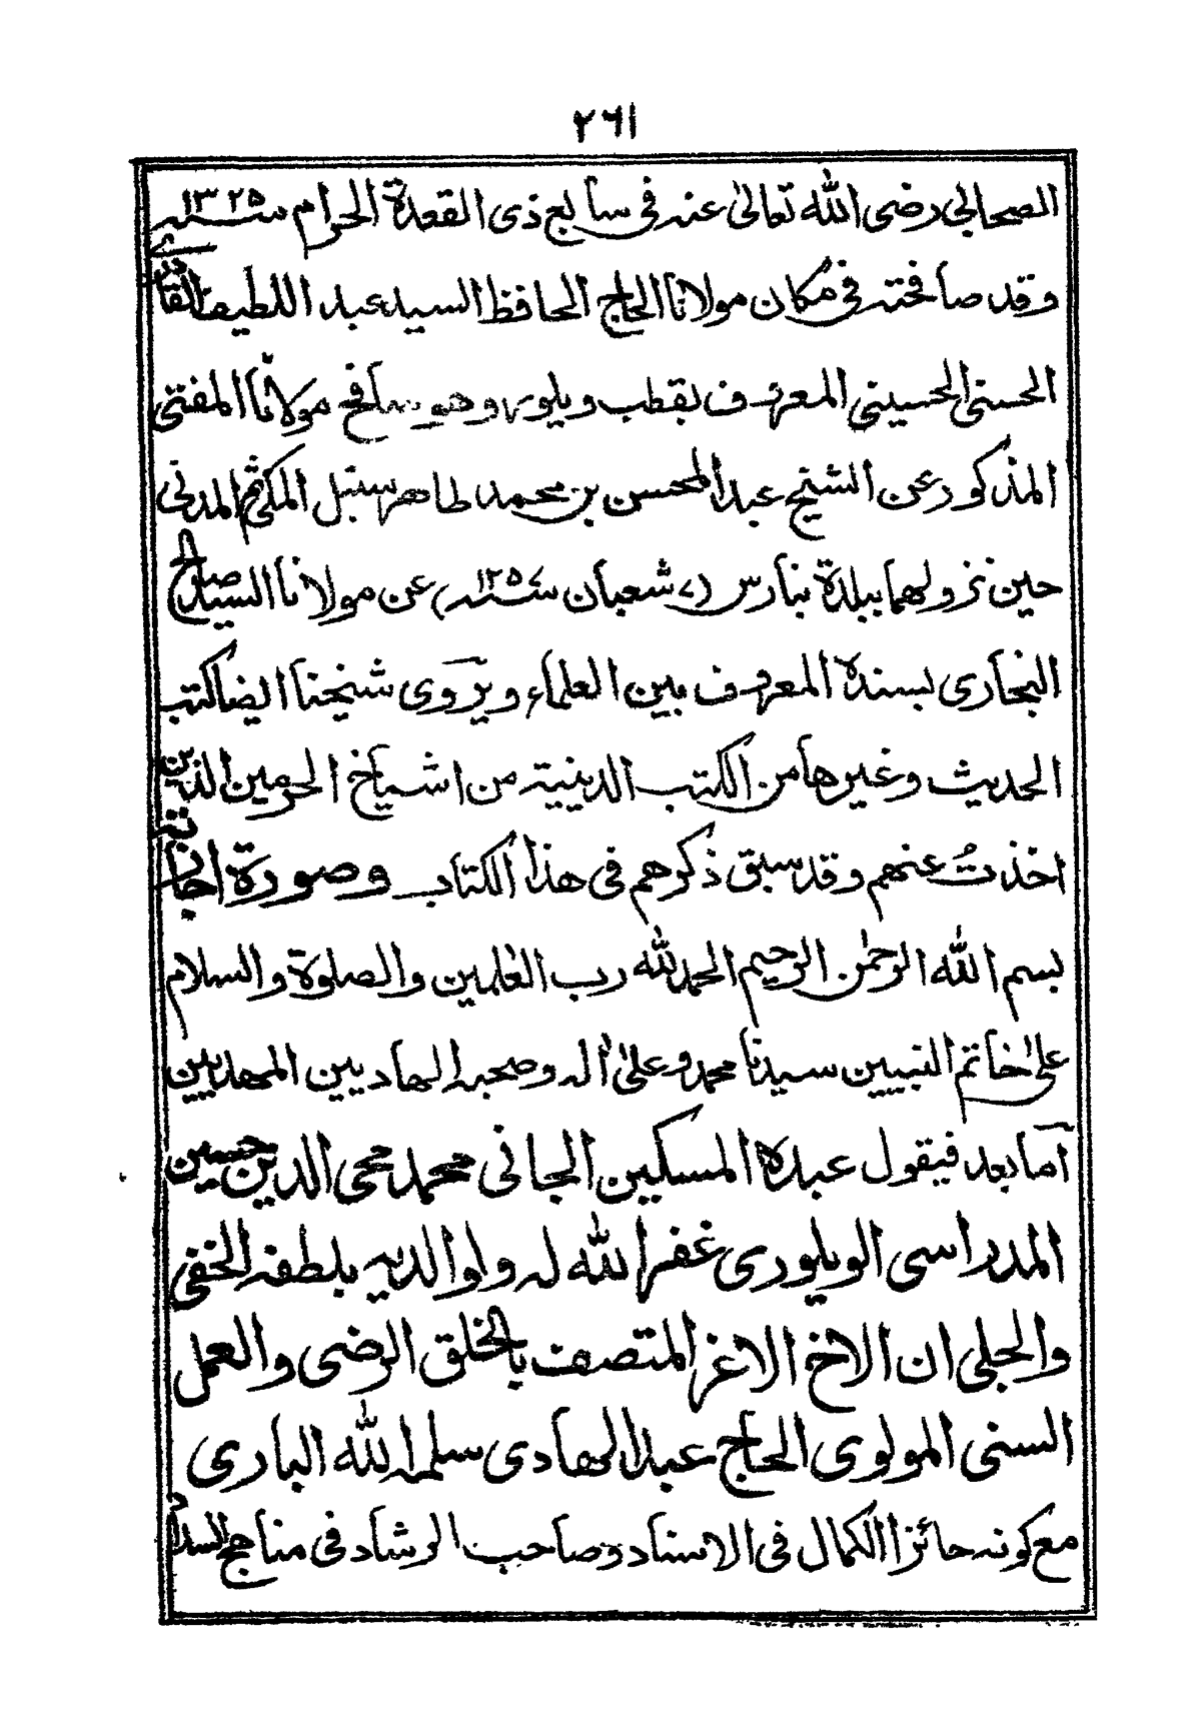 ٢٦١
الصحابي رضى الله تعالىٰ عنه فى سابع ذى القعدة الحرام سنہ ١٣٢٥
وقد صافحته فى مكان مولانا الحاج الحافظ السيد عبد اللطيف القادرى
الحسنى الحسينى المعروف بقطب ويلور وهو صافح مولانا المفتى
المذكور عن الشيخ عبد المحسن بن محمد طاهر سنبل المكى ثم المدنى
حين نزولهما ببلدة بنارس (٧ شعبان سنہ ١٢٥٧) عن مولانا السيد صالح
البخارى بسنده المعروف بين العلماء ويروى شيخنا ايضا كتب
الحديث وغيرها من الكتب الدينية من اشياخ الحرمين الذين
اخذتُ عنهم وقد سبق ذكرهم فى هذا الكتاب وصورة اجازته
بسم الله الرحمٰن الرحيم الحمد لله رب العٰلمين والصلوة والسلام
علىٰ خاتم النبيين سيدنا محمد وعلىٰ اٰله وصحبه الهاديين المهديين
آما بعد فيقول عبده المسكين الجانى محمد محى الدين حسين
المدراسى الويلورى غفر الله له ولوالديه بلطفه الخفى
والجلى ان الاخ الاغر المتصف بالخلق الرضى والعمل
السنى المولوى الحاج عبد الهادى سلمه الله البارى
مع كونه حائزا الكمال فى الاسناد وصاحب الرشاد فى مناهج السداد